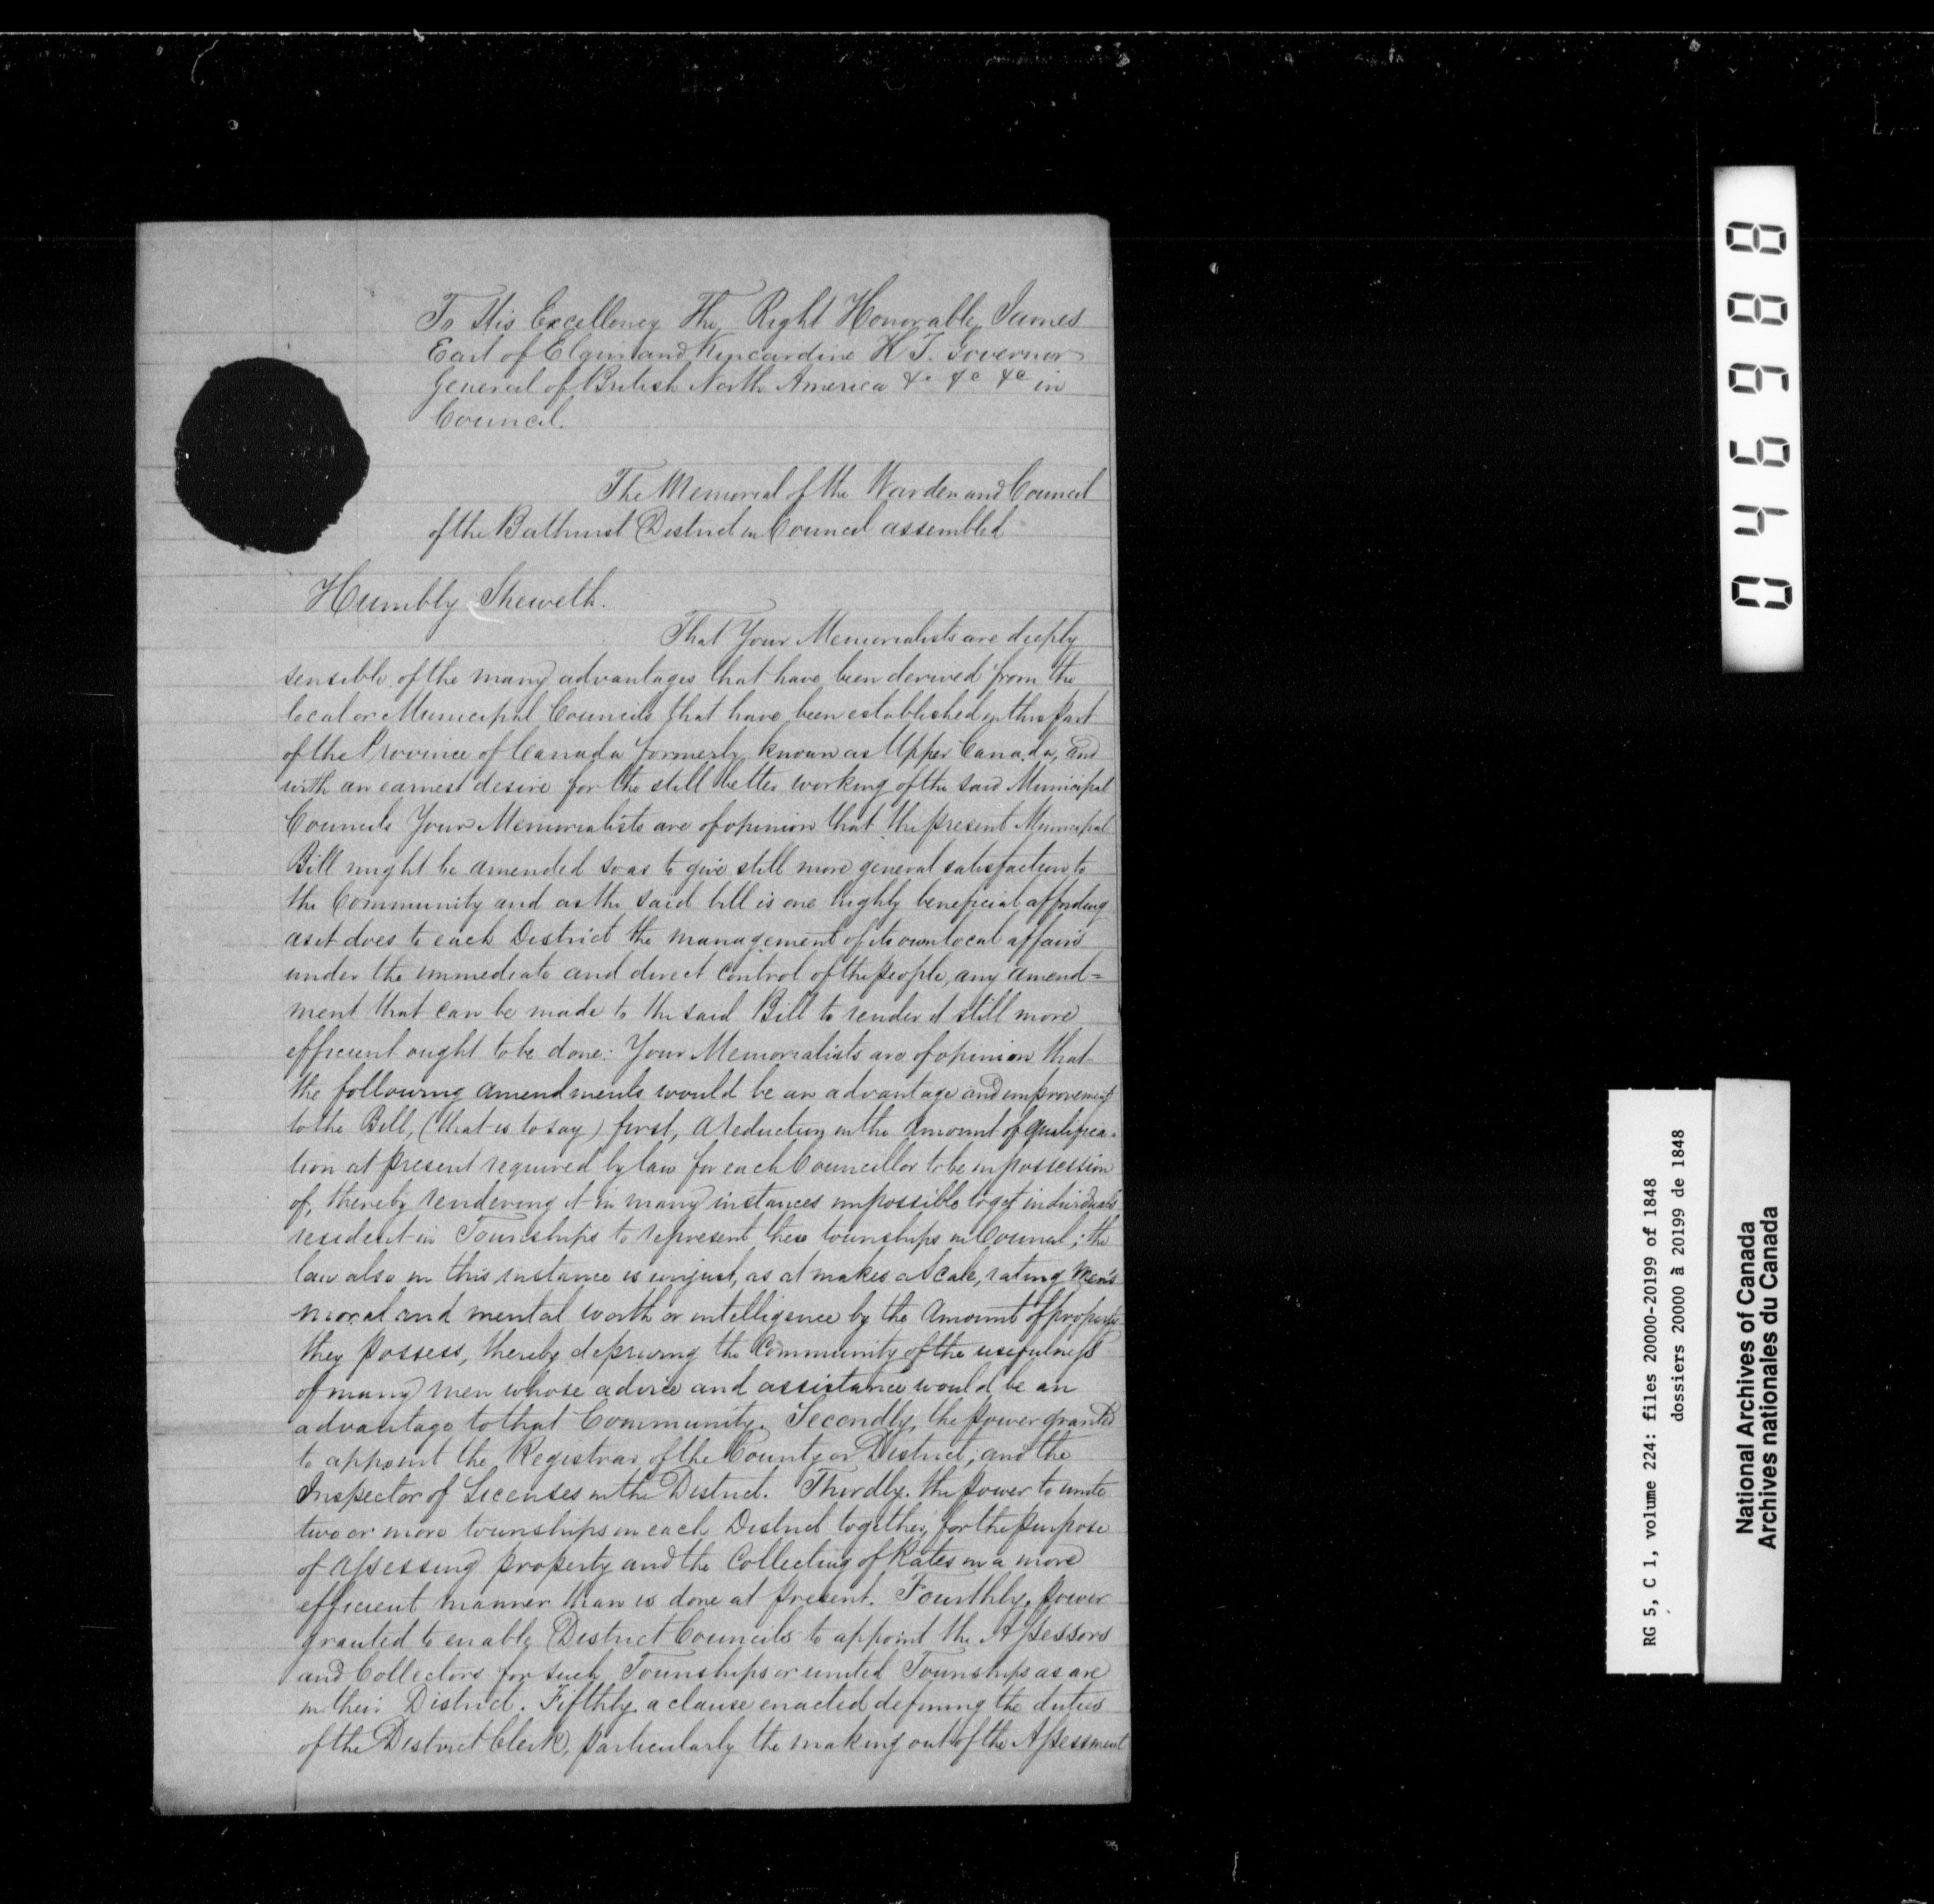 To His Excellency The Right Honorable James
Earl of Elgin and Kincardine K. T. Governor
General of British North America &c &c &c in
Council.
The Memorial of the Warden and Council
of the Bathurst District in Council assembled
Humbly Sheweth.
That Your Memorialists are deeply
sensible of the many advantages that have been derived from the
local or Municipal Councils that have been established in this part
of the Province of Canada formerly known as Upper Canada, and
with an earnest desire for the still better working of the said Municipal
Councils Your Memorialists are of opinion that the present Municipal
Bill might be amended so as to give still more general satisfaction to
the Community and as the said bill is one highly beneficial affording
as it does to each District the management of its own local affairs
under the immediate and direct control of the people, any amend=
ment that can be made to the said Bill to render it still more
efficient ought to be done: Your Memorialists are of opinion that
the following amendments would be an advantage and improvement
to the Bill, (that is to say) first, a reduction in the amount of qualifica-
tion at present required by law for each Councillor to be in possession
of, thereby rendering it in many instances impossible to get individuals
resident in Townships to represent these townships in Council; the
law also in this instance is unjust, as it makes a Scale, rating Men's
moral and mental worth or intelligence by the amount of property
they possess, thereby depriving the Community of the usefulness
of many men whose advice and assistance would be an
advantage to that Community. Secondly, the power granted
to appoint the Registrar of the County or District, and the
Inspector of Licenses in the District. Thirdly. the power to unite
two or more townships in each District together, for the purpose
of assessing property and the Collecting of Rates in a more
efficient manner than is done at present. Fourthly, power
granted to enable District Councils to appoint the Assessors
and Collectors for such Townships or united Townships as are
in their District. Fifthly. a clause enacted defining the duties
of the District Clerk, particularly the making out of the Assessment
046988
RG 5, C 1, volume 224: files 20000-20199 of 1848
dossiers 20000 à 20199 de 1848
National Archives of Canada
Archives nationales du Canada